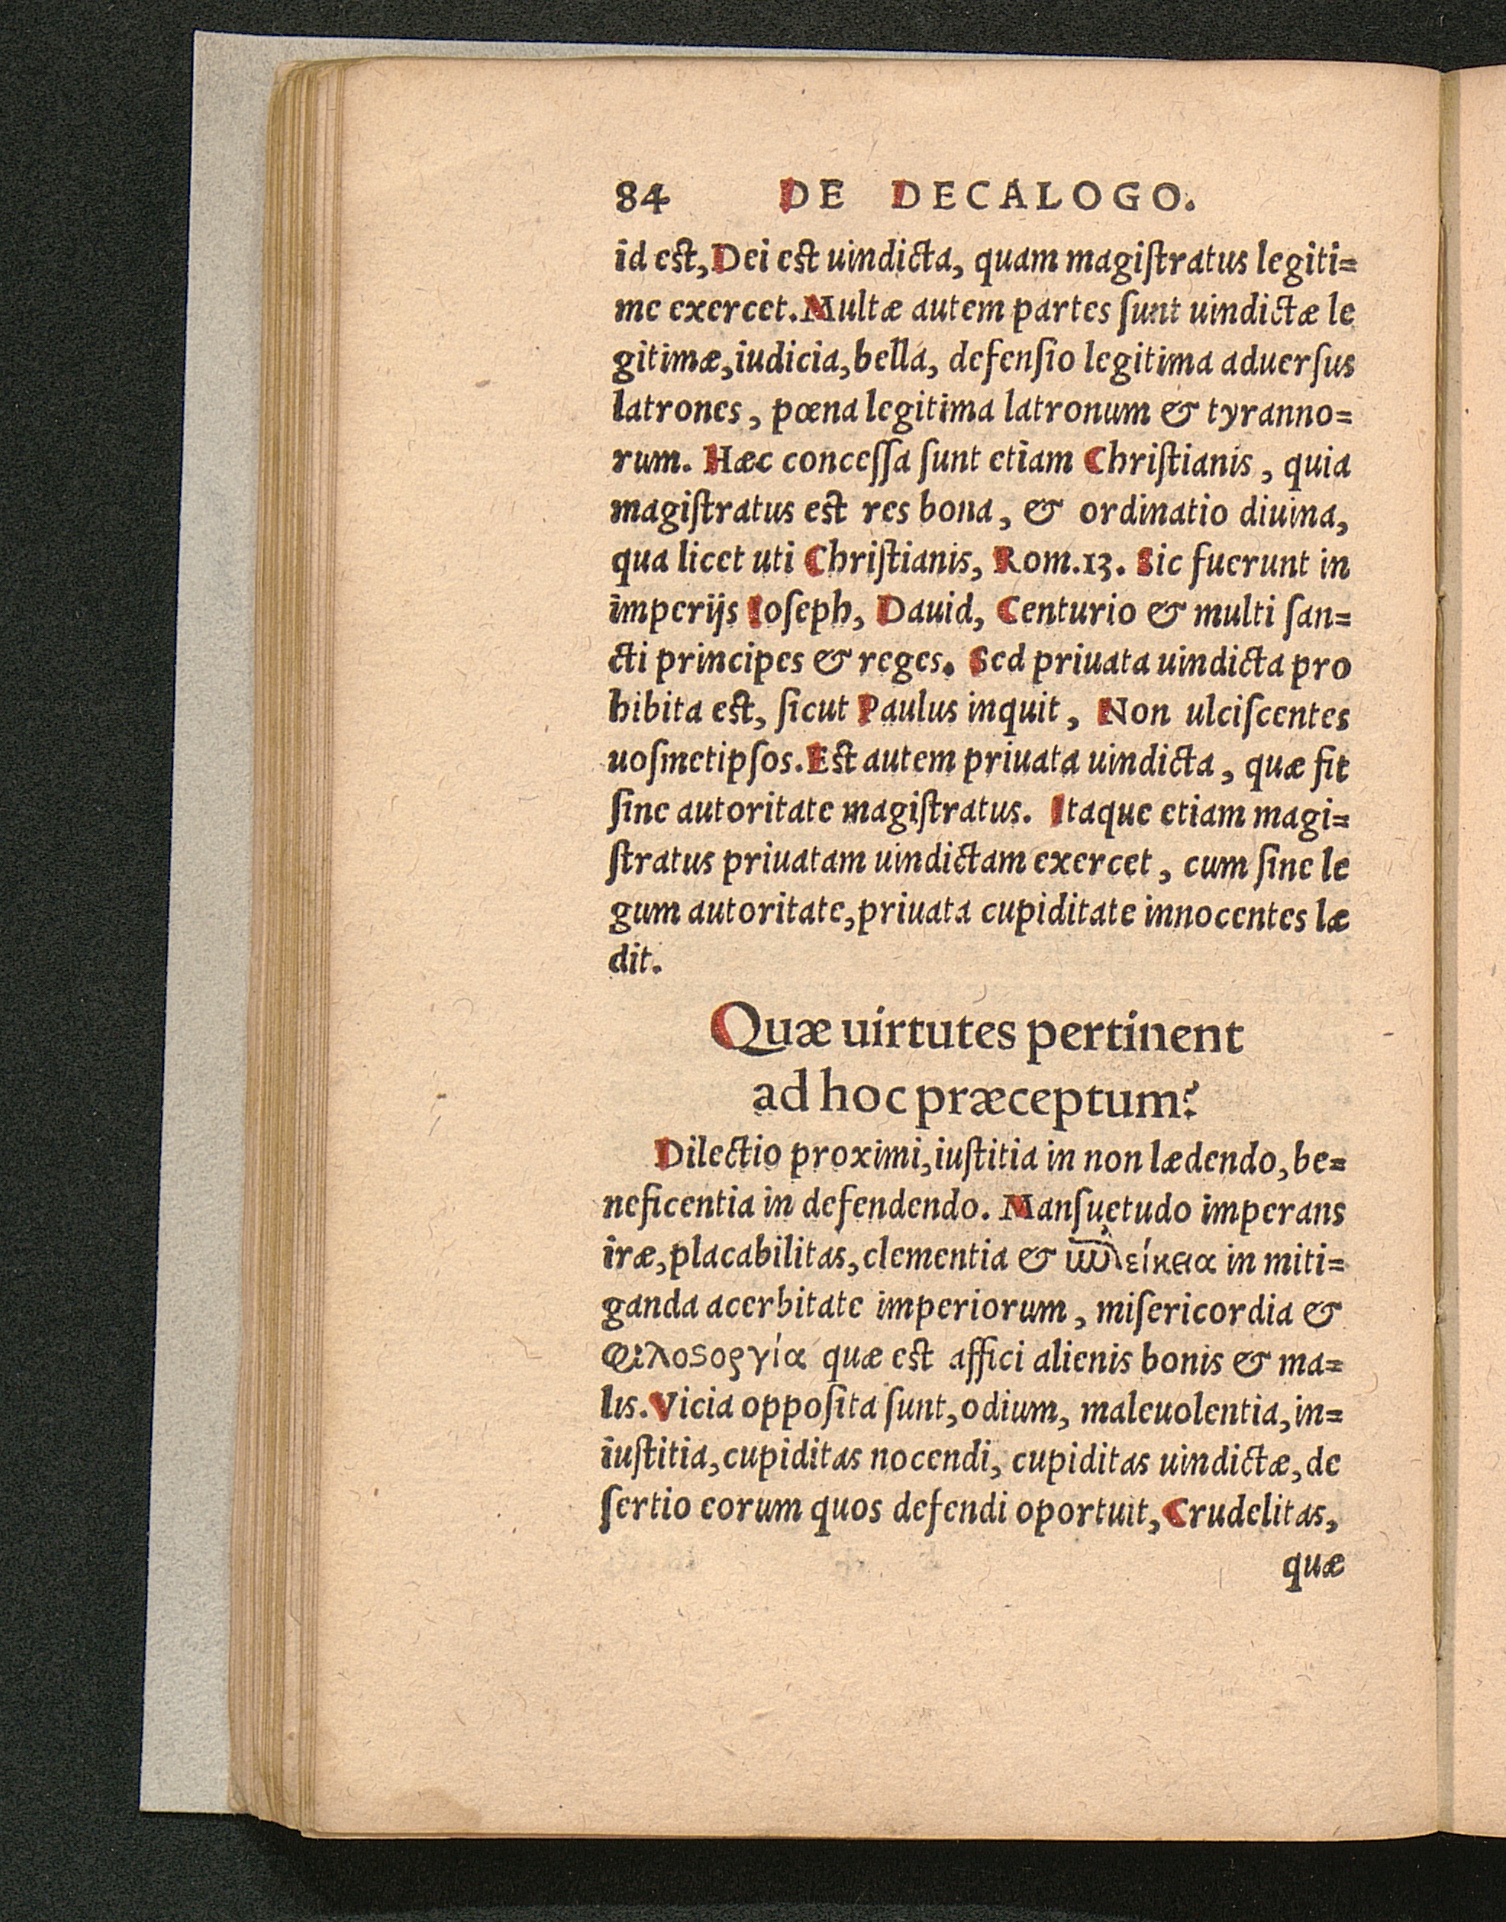 84 DE DECALOGO.
id est, Dei est uindicta, quam magiſtratus legiti=
me exercet. Multæ autem partes ſunt uindictæ le
gitimæ, iudicia, bella, defenſio legitima aduerſus
latrones, pœna legitima latronum & tyranno=
rum. Hæc conceſſa ſunt etiam Chriſtianis, quia
magiſtratus est res bona, & ordinatio diuina,
qua licet uti Chriſtianis, Rom.13. Sic fuerunt in
imperijs Ioſeph, Dauid, Centurio & multi ſan=
cti principes & reges. Sed priuata uindicta pro
hibita est, ſicut Paulus inquit, Non ulciſcentes
uoſmetipſos. Est autem priuata uindicta, quæ fit
ſine autoritate magiſtratus. Itaque etiam magi=
ſtratus priuatam uindictam exercet, cum ſine le
gum autoritate, priuata cupiditate innocentes læ
dit.
Quæ uirtutes pertinent
ad hoc præceptum?
Dilectio proximi, iuſtitia in non lædendo, be=
neficentia in defendendo. Manſuetudo imperans
iræ, placabilitas, clementia & ἐπιείκεια in miti=
ganda acerbitate imperiorum, miſericordia &
φιλοϛοργία quæ est affici alienis bonis & ma=
lis. Vicia oppoſita ſunt, odium, maleuolentia, in=
iuſtitia, cupiditas nocendi, cupiditas uindictæ, de
ſertio eorum quos defendi oportuit, Crudelitas,
quæ